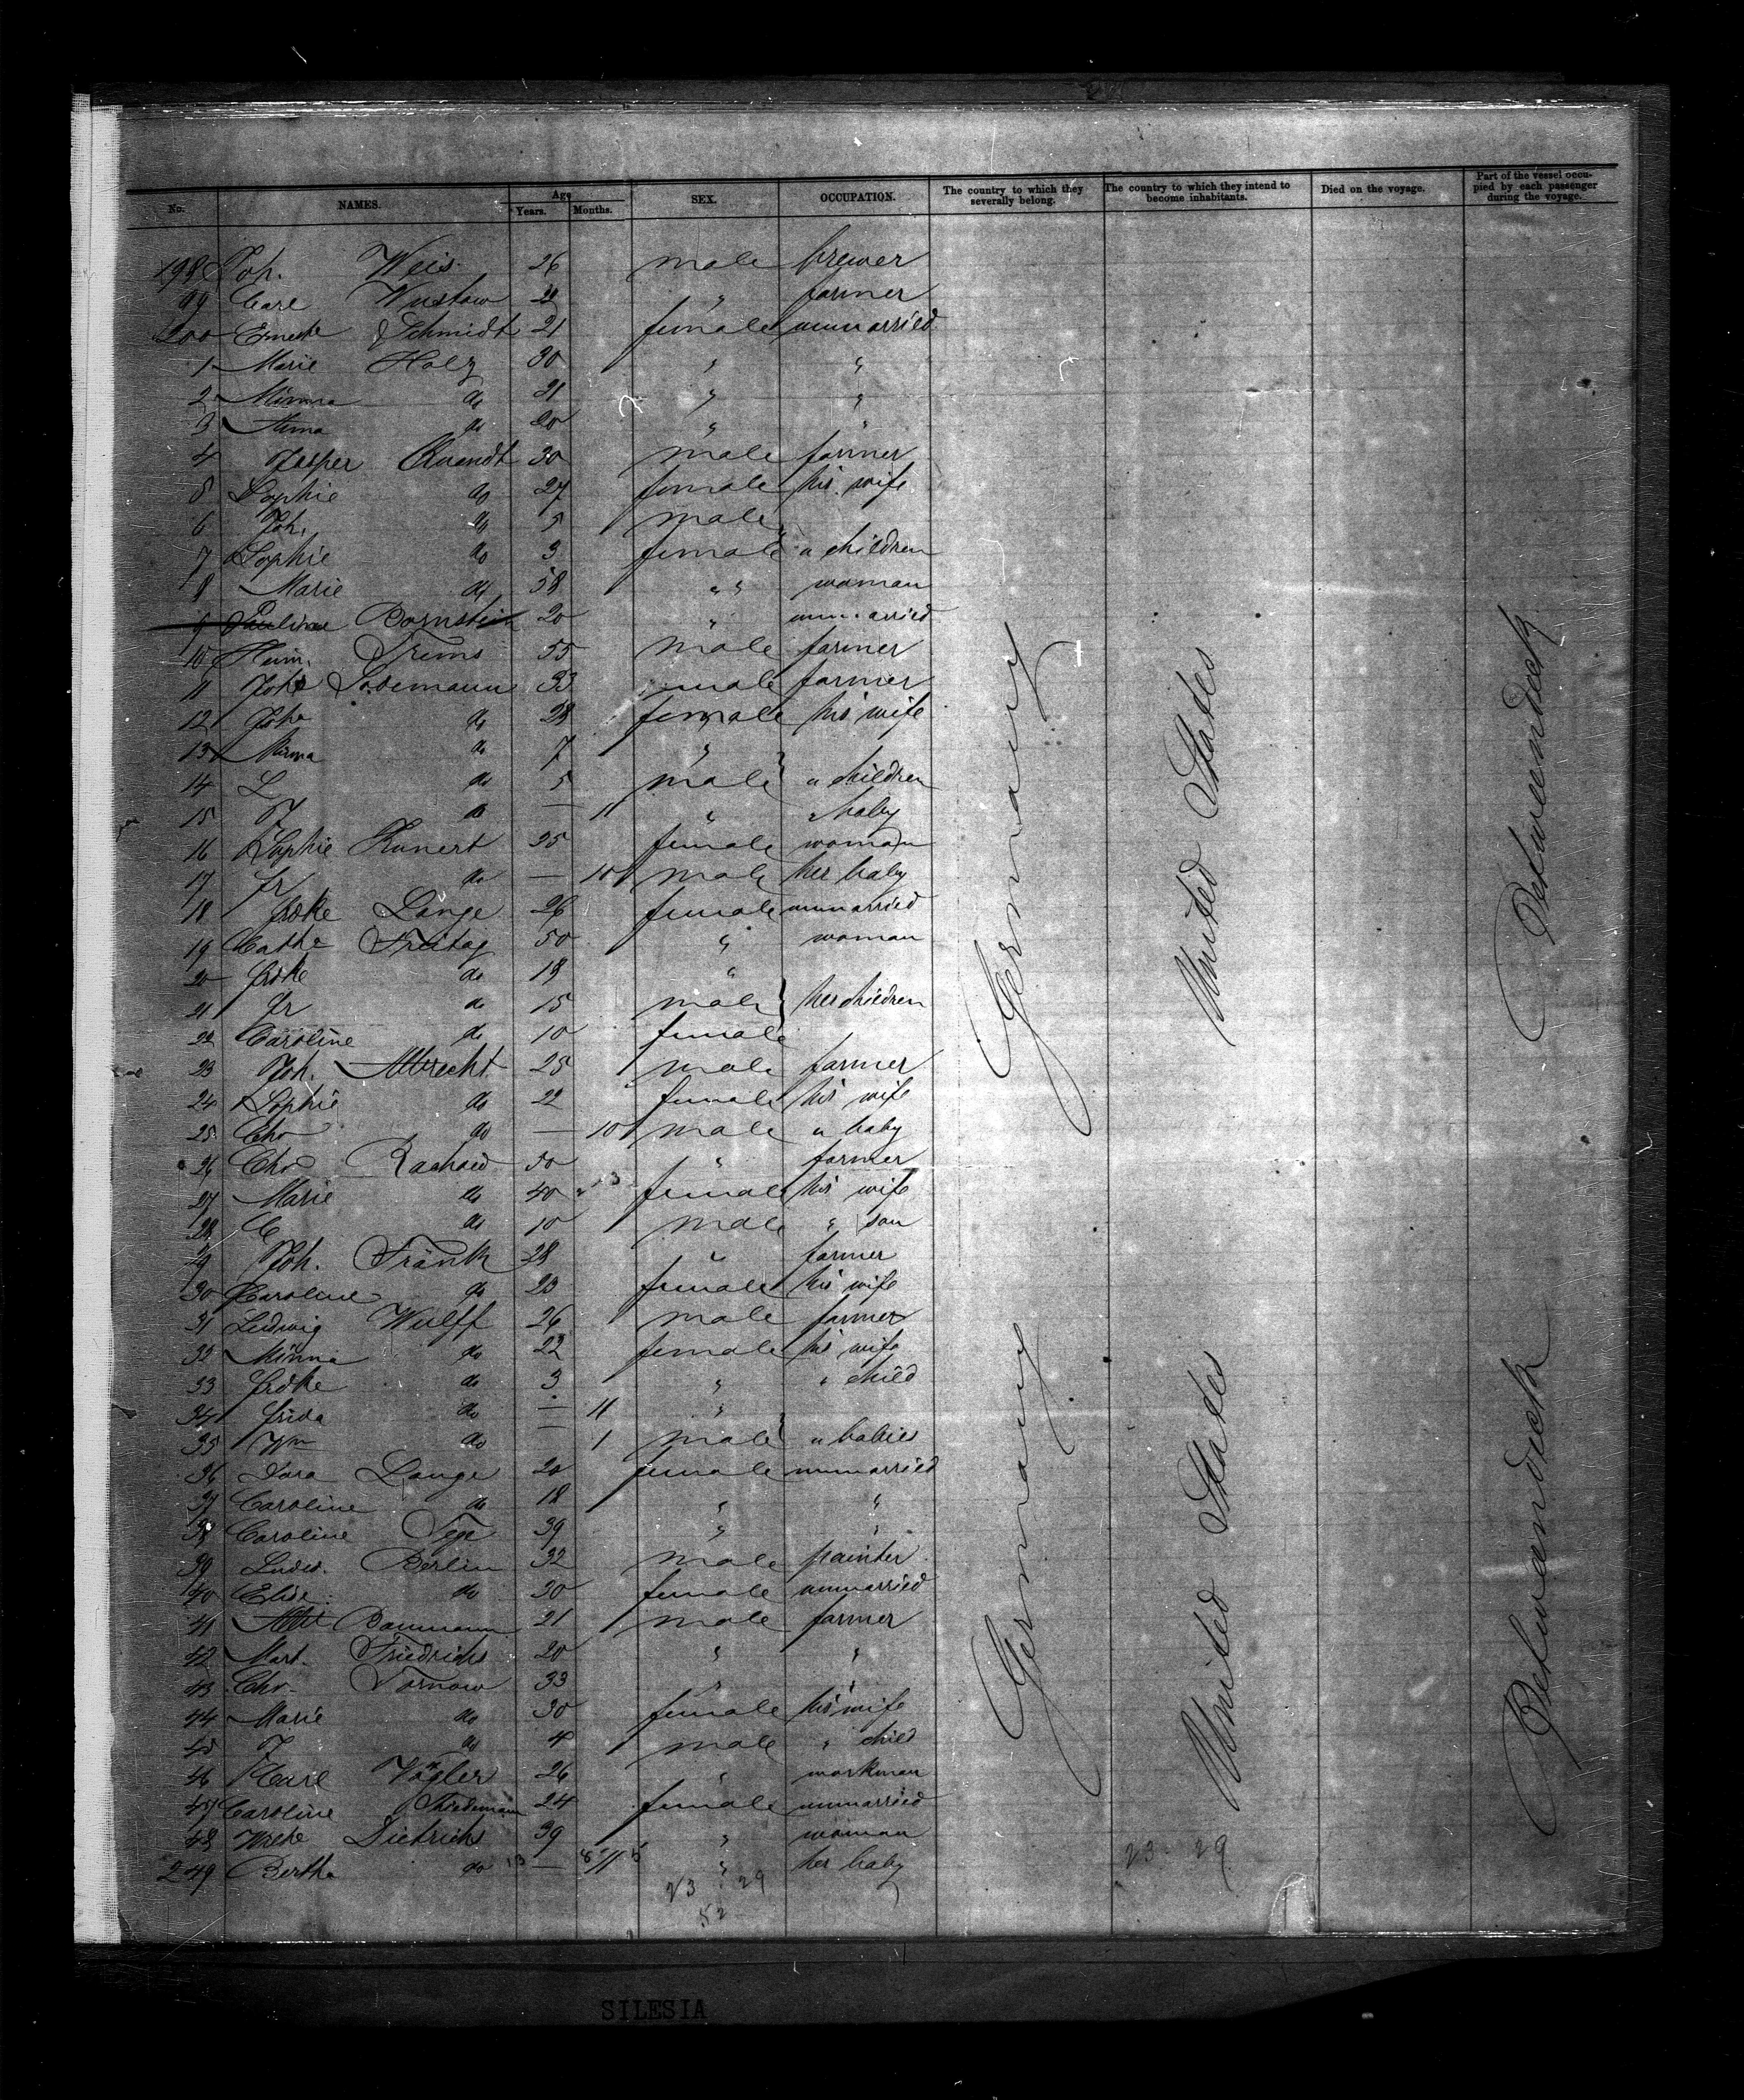 No. NAMES. Age Years. Months. SEX. OCCUPATION. The country to which they severally belong. The country to which they intend to become inhabitants. Died on the voyage. Part of the vessel occupied by each passenger during the voyage.
198 Joh. Weis 26 male brewer
99 Carl Wustow farmer
200 Schmidt 21 female unmarried
1 Marie Holz 30 " "
2 Minna do 21 " "
3 Anna do 20 " "
4 Jasper Quandt 30 male farmer
5 Sophie do 27 female his wife
6 Joh. do 5 male
7 Sophie do 3 female " children
8 Marie do 58 " " woman
9 Pauline Bornstein 20 " unmarried
10 Heinr. Trems 55 male farmer
11 Johs Lodemann 33 male farmer
12 Joha do 28 female his wife
13 Minna do 7 "
14 L do 5 male " children
15 J do — 11 " " baby
16 Sophie Kunert 25 female woman
17 Fr do — male her baby
18 Fridke Lange 26 female unmarried
19 Cathe Freitag 50 " woman
20 Fridke do 18 "
21 Fr do 15 male her children
22 Caroline do 10 female
23 Joh. Albrecht 25 male farmer
24 Sophie do 22 female his wife
25 Chr do — 10 male " baby
26 Chr 50 " farmer
27 Marie do 40 female his wife
28 C do 10 male " son
29 Joh. Frank 28 " farmer
30 Caroline do 23 female his wife
31 Ludwig Wulff 26 male farmer
32 Minna do 22 female his wife
33 Fridke do 3 " " child
34 Frida do — 11 "
35 Wm do — 1 male " babies
36 Dora Lange 20 female unmarried
37 Caroline do 18 " "
38 Caroline Tege 39 " "
39 Ludw. Berlin 32 male painter
40 Elise do 30 female unmarried
41 Albt Baumann 21 male farmer
42 Mart. Friedrichs 20 " "
43 Chr. Tornow 33 " "
44 Marie do 30 female his wife
45 J do 4 male " child
46 Karl Vogler 26 " workman
47 Caroline Thiedemann 24 female unmarried
48 Wilhe Dietrichs 39 " woman
249 Bertha do — 11 " her baby
Germany United States Betweendeck
Germany United States Betweendeck
23 : 29
52
23 29
SILESIA